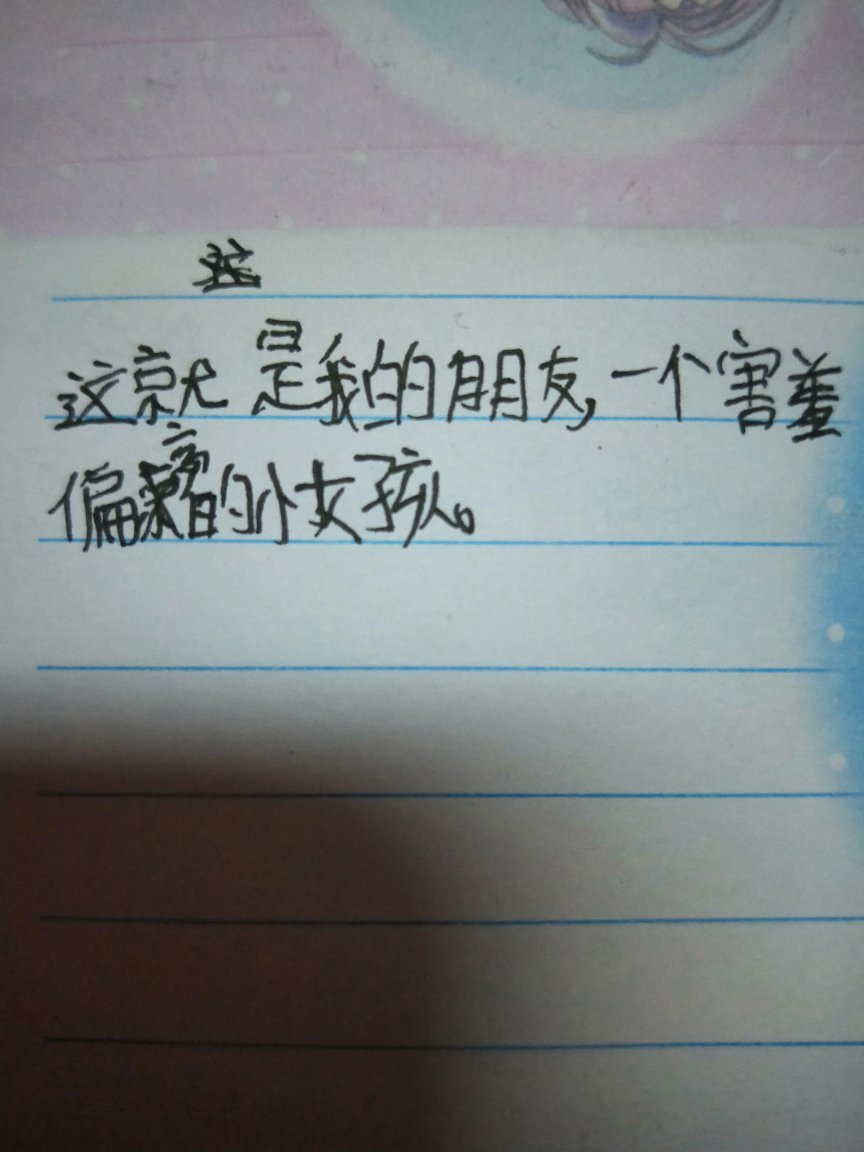 这就是我的朋友,一个害羞
偏的小女孩。